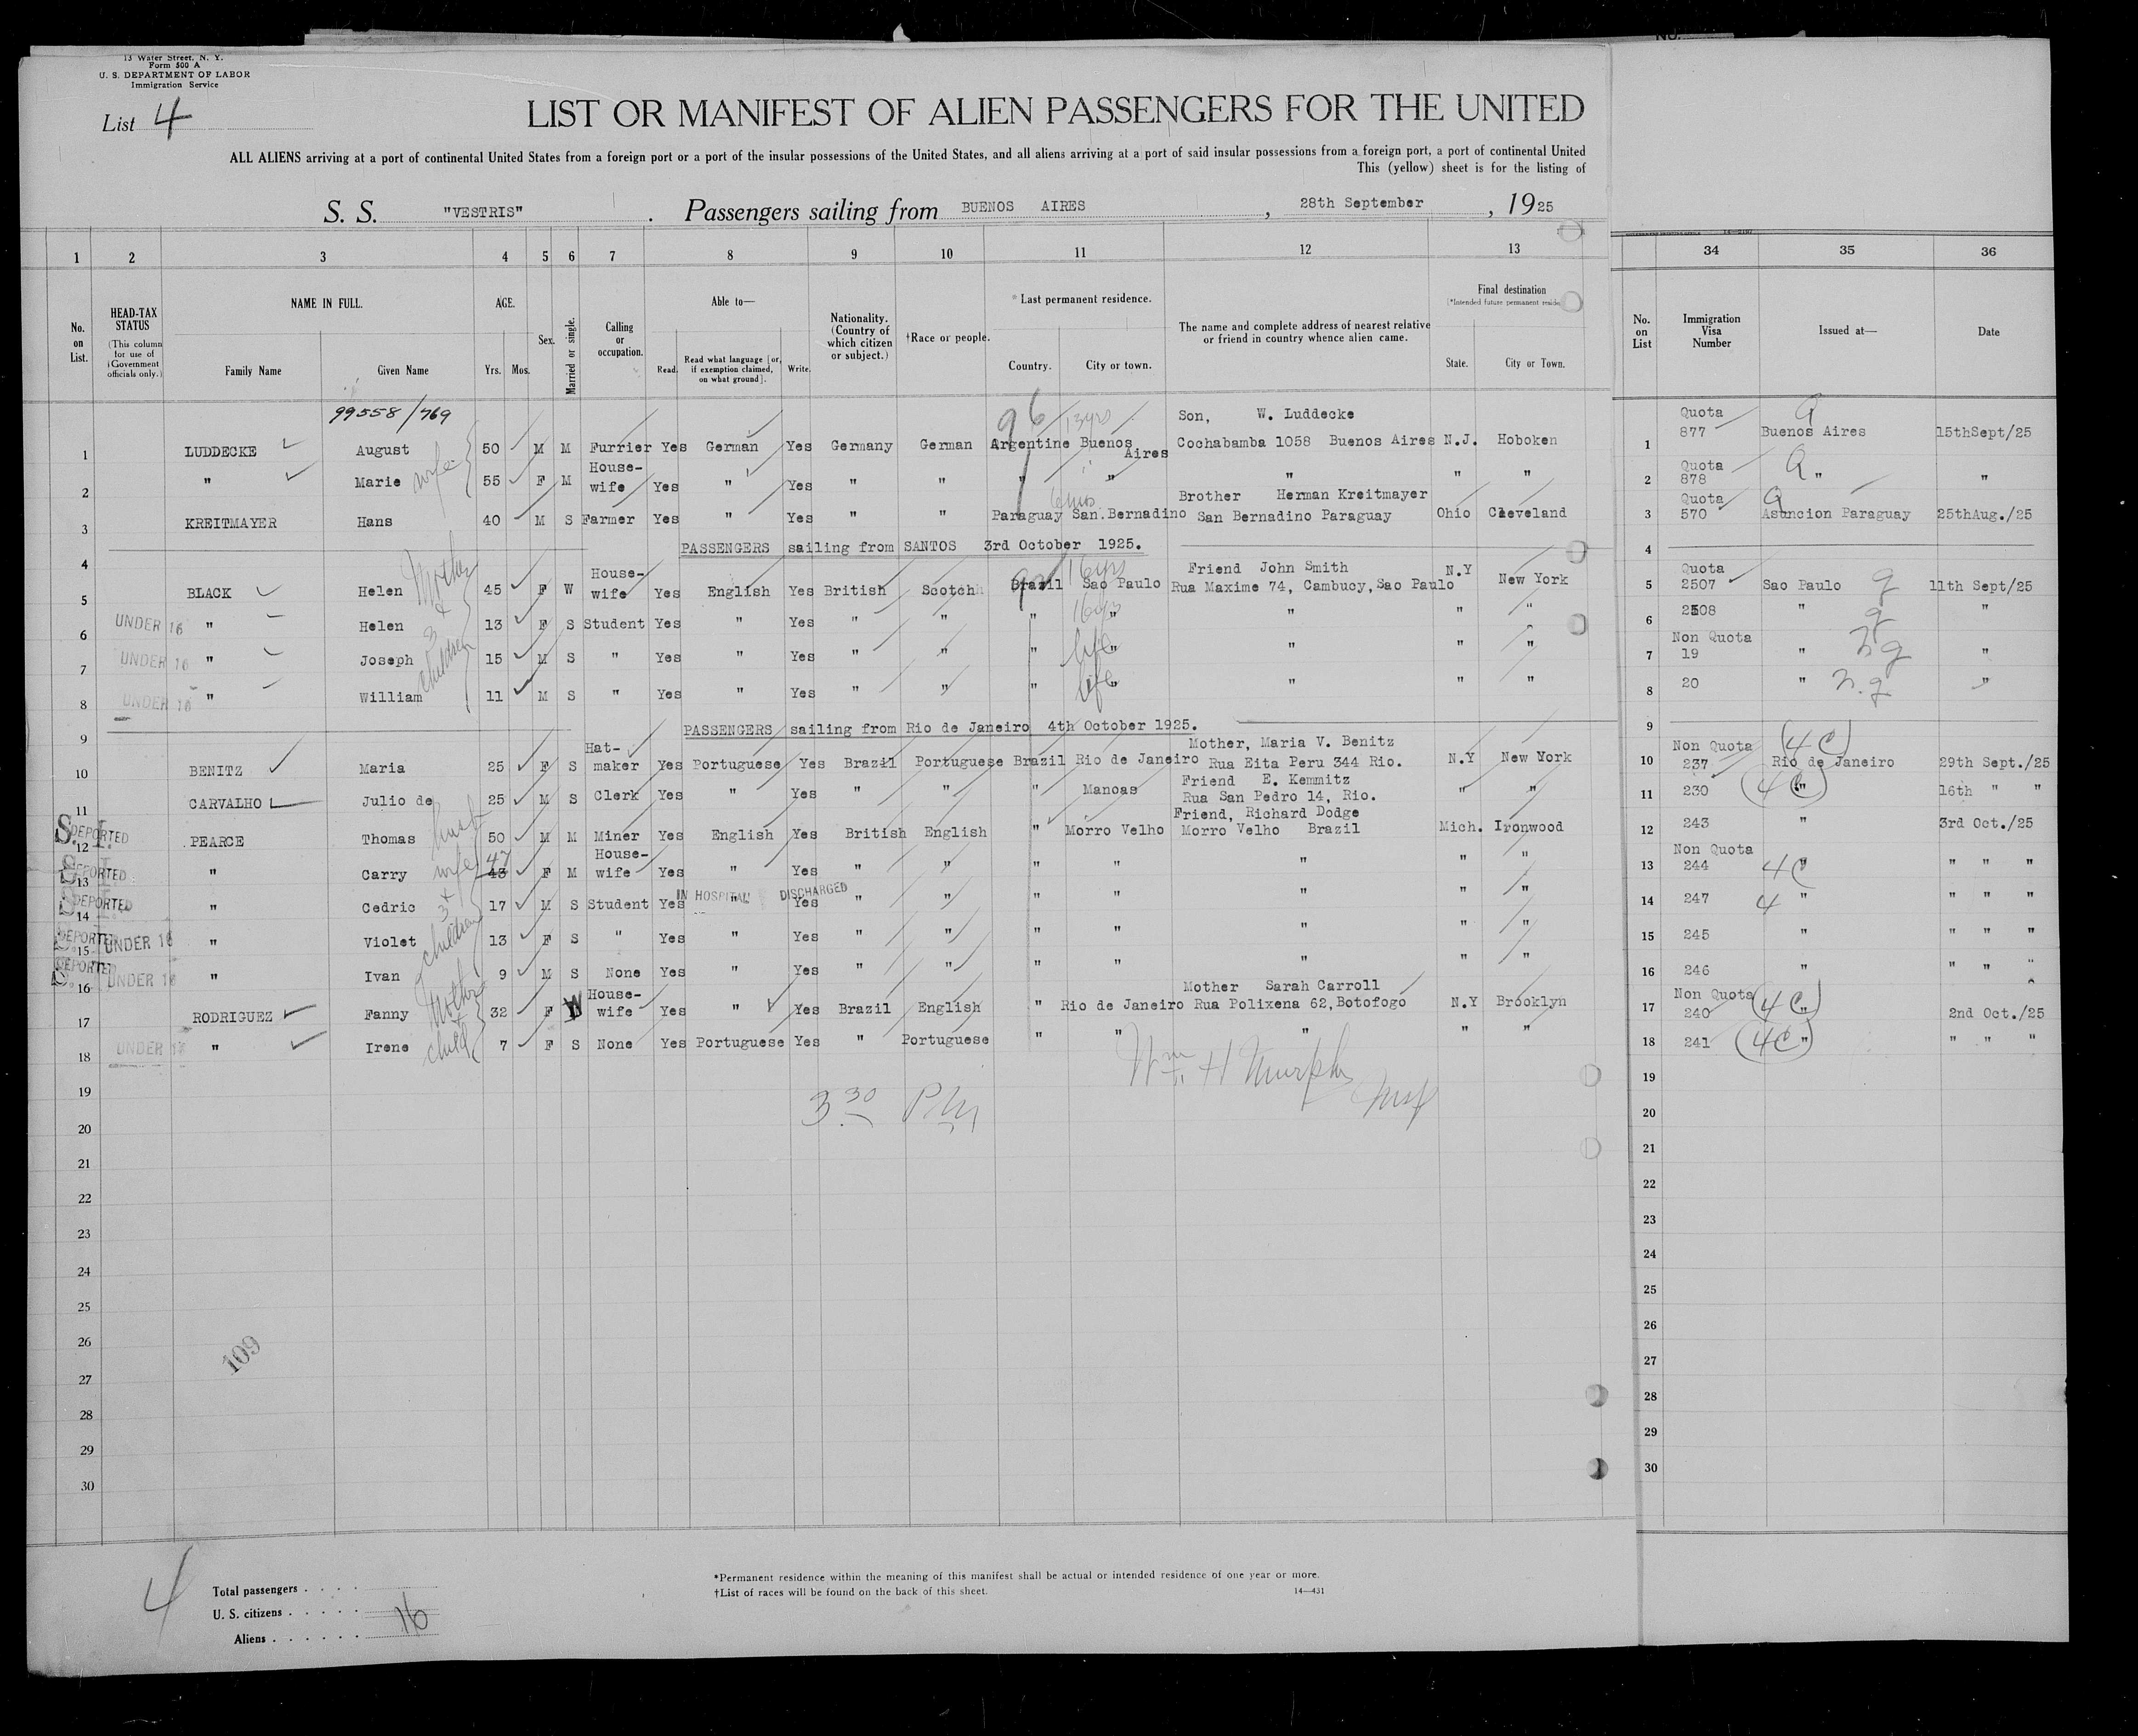 13 Water Street, N. Y.
Form 500 A
U. S. DEPARTMENT OF LABOR
Immigration Service
List 4
LIST OR MANIFEST OF ALIEN PASSENGERS FOR THE UNITED
ALL ALIENS arriving at a port of continental United States from a foreign port or a port of the insular possessions of the United States, and all aliens arriving at a port of said insular possessions from a foreign port, a port of continental United
This (yellow) sheet is for the listing of
S. S. "VESTRIS" . Passengers sailing from BUENOS AIRES , 28th September , 1925
1 2 3 4 5 6 7 8 9 10 11 12 13 34 35 36
No. on List.
HEAD-TAX STATUS
(This column for use of Government officials only.)
NAME IN FULL.
Family Name Given Name
AGE.
Yrs. Mos.
Sex.
Married or single.
Calling or occupation.
Able to—
Read. Read what language [or, if exemption claimed, on what ground]. Write.
Nationality. (Country of which citizen or subject.)
†Race or people.
*Last permanent residence.
Country. City or town.
The name and complete address of nearest relative or friend in country whence alien came.
Final destination
State. City or Town.
No. on List
Immigration Visa Number
Issued at—
Date
99558/769
96 13yrs
Son, W. Luddecke Quota Q
1 LUDDECKE August 50 M M Furrier Yes German Yes Germany German Argentine Buenos Aires Cochabamba 1058 Buenos Aires N.J. Hoboken 1 877 Buenos Aires 15thSept/25
wife
2 " Marie 55 F M House-wife Yes " Yes " " " " " " " 2 Quota 878 Q " "
Brother Herman Kreitmayer Quota Q
3 KREITMAYER Hans 40 M S Farmer Yes " Yes " " Paraguay San.Bernadino San Bernadino Paraguay Ohio Cleveland 3 570 Asuncion Paraguay 25thAug./25
4 PASSENGERS sailing from SANTOS 3rd October 1925. 4
Mother & 3 children
16yrs
Friend John Smith Quota
5 BLACK Helen 45 F W House-wife Yes English Yes British Scotch Brazil Sao Paulo Rua Maxime 74, Cambucy,Sao Paulo N.Y New York 5 2507 Sao Paulo 11th Sept/25
6 UNDER 16 " Helen 13 F S Student Yes " Yes " " " " " " " 6 2508 " "
7 UNDER 16 " Joseph 15 M S " Yes " Yes " " " life " " " " 7 Non Quota 19 " "
8 UNDER 16 " William 11 M S " Yes " Yes " " " life " " " " 8 20 " n.q "
9 PASSENGERS sailing from Rio de Janeiro 4th October 1925. 9
Mother, Maria V. Benitz Non Quota (4C)
10 BENITZ Maria 25 F S Hat-maker Yes Portuguese Yes Brazil Portuguese Brazil Rio de Janeiro Rua Eita Peru 344 Rio. N.Y New York 10 237 Rio de Janeiro 29th Sept./25
Friend E. Kemmitz
11 CARVALHO Julio de 25 M S Clerk Yes " Yes " " " Manoas Rua San Pedro 14, Rio. " " 11 230 (4C) " 16th " "
Friend, Richard Dodge
S.I. DEPORTED 12 PEARCE Thomas husb 50 M M Miner Yes English Yes British English " Morro Velho Morro Velho Brazil Mich. Ironwood 12 243 " 3rd Oct./25
wife + 3 children
S.I. DEPORTED 13 " Carry 43 47 F M House-wife Yes " Yes " " " " " " " 13 Non Quota 244 4C " " " "
IN HOSPITAL DISCHARGED
S.I. DEPORTED 14 " Cedric 17 M S Student Yes " Yes " " " " " " " 14 247 4 " " " "
DEPORTED 15 UNDER 16 " Violet 13 F S " Yes " Yes " " " " " " " 15 245 " " " "
DEPORTED 16 UNDER 16 " Ivan 9 M S None Yes " Yes " " " " " " " 16 246 " " " "
Mother Sarah Carroll Non Quota
17 RODRIGUEZ Fanny 32 F W House-wife Yes " Yes Brazil English " Rio de Janeiro Rua Polixena 62,Botofogo N.Y Brooklyn 17 240 (4C) " 2nd Oct./25
Mother + child
18 UNDER 16 " Irene 7 F S None Yes Portuguese Yes " Portuguese " " " " " 18 241 (4C) " " " "
Wm. H Murphy
19 19
3 30 P.M.
20 20
21 21
22 22
23 23
24 24
25 25
26 26
109
27 27
28 28
29 29
30 30
4
Total passengers
U. S. citizens
Aliens 16
*Permanent residence within the meaning of this manifest shall be actual or intended residence of one year or more.
†List of races will be found on the back of this sheet. 14—431